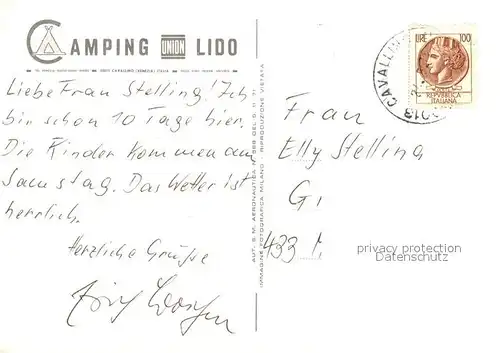 CAMPING UNION LIDO
Liebe Frau Stelling! Ich
bin schon 10 Tage hier.
Die Kinder kommen am
Samstag. Das Wetter ist
herrlich.
Herzliche Grüße
AUT. S. M. AERONAUTICA
IMMAGINE FOTOGRAFICA MILANO RIPRODUZIONE VIETATA
LIRE 100
REPVBBLICA
ITALIANA
CAVALLIN
Frau
Elly Stelling
G
433
privacy protection
Datenschutz